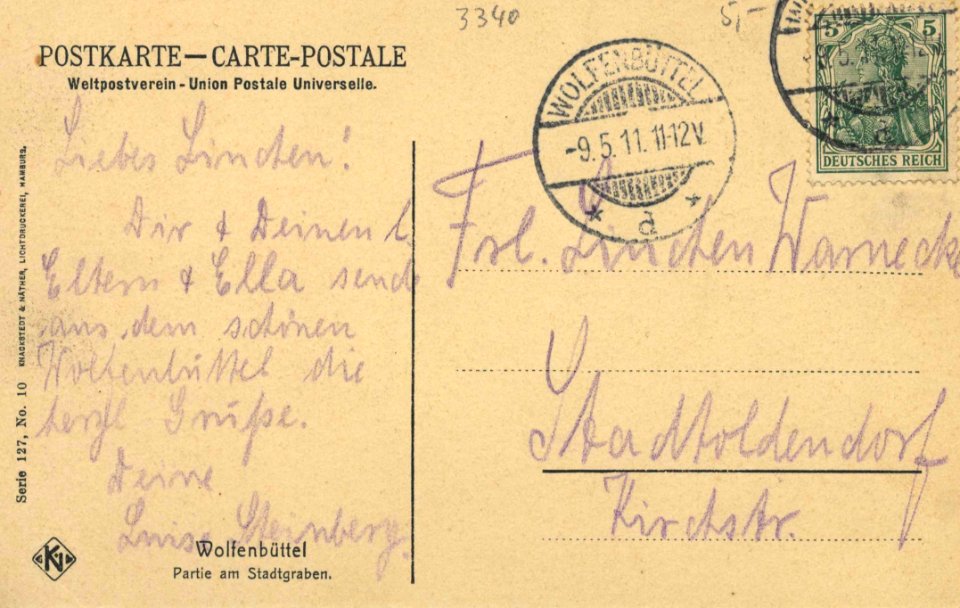 3340
5,-
POSTKARTE — CARTE-POSTALE
Weltpostverein - Union Postale Universelle.
WOLFENBÜTTEL
-9.5.11.11-12V.
* a *
5 5
DEUTSCHES REICH
* a
Liebes Linchen!
Dir & Deinen l
Eltern & Ella send
aus dem schönen
Wolfenbüttel die
herzl Grüße.
Deine
Luise Steinberg.
Frl. Linchen Warnecke
Stadtoldendorf
Kirchstr.
Wolfenbüttel
Partie am Stadtgraben.
Serie 127, No. 10 KNACKSTEDT & NÄTHER, LICHTDRUCKEREI, HAMBURG.